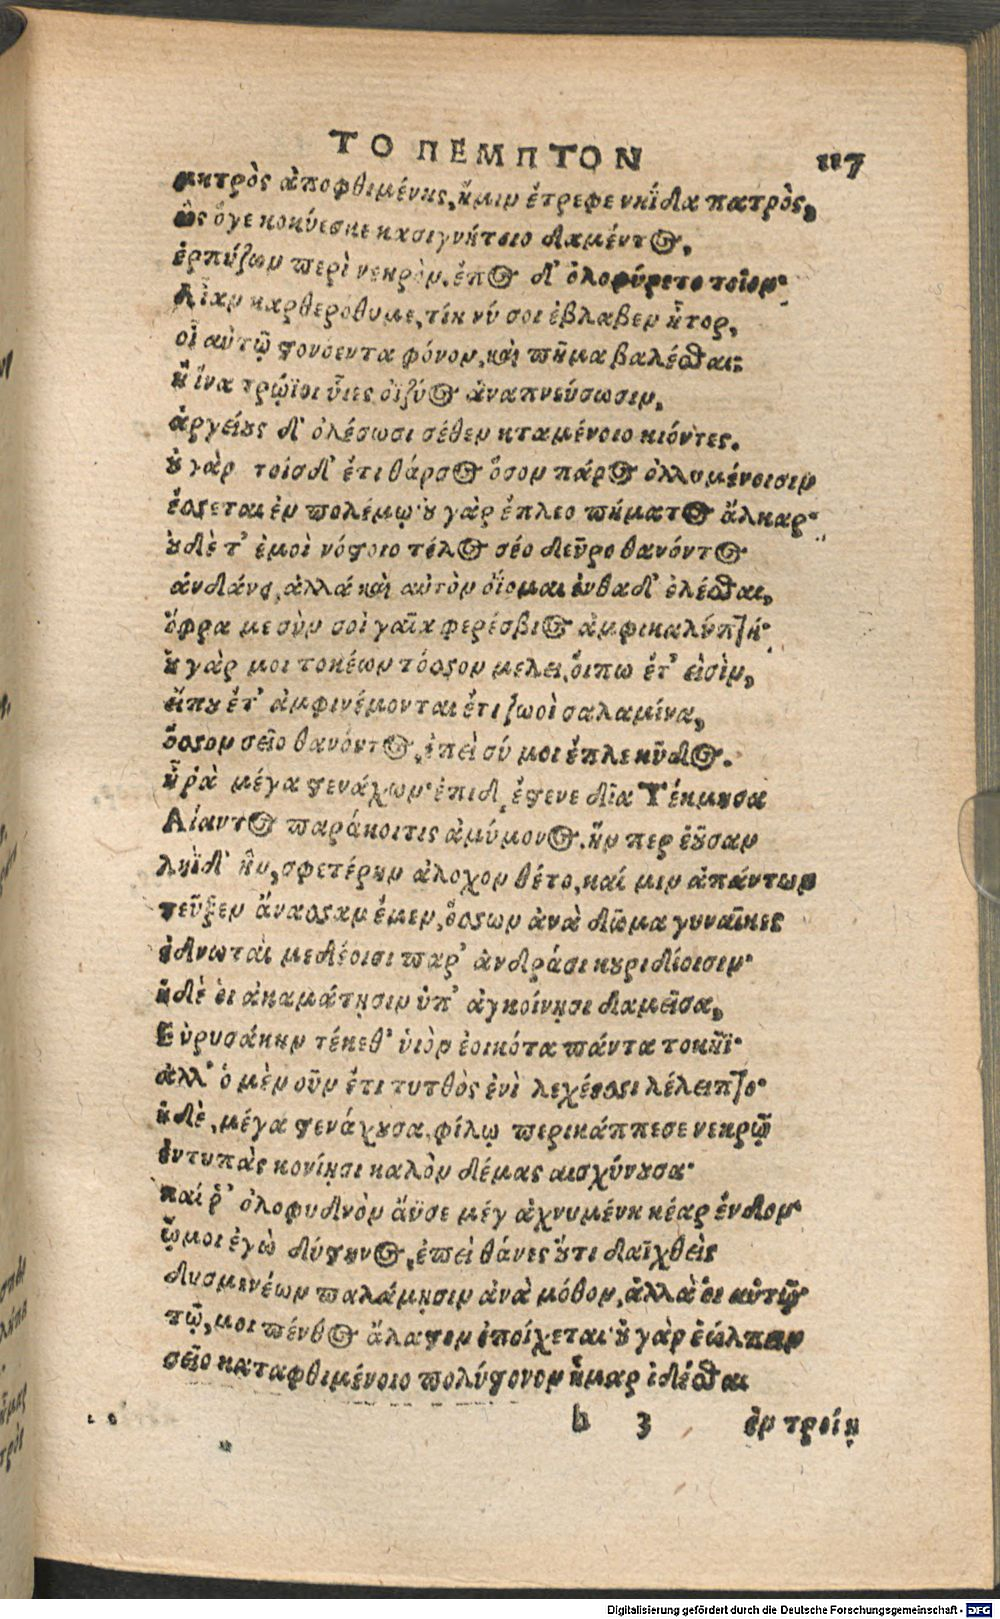 ΤΟ ΠΕΜΠΤΟΝ 117
μητρὸς ἀποφθιμένης, ἥμιν ἔτρεφε νηΐδα πατρὸς,
ὣς ὅγε κοκύεσκε κασιγνήτοιο δαμέντος,
ἑρπύζων περὶ νεκρὸν. ἔπος δ' ὀλοφύρετο τοῖον·
Αἶαν καρθερόθυμε, τίη νύ σοι ἐβλαβεν ἦτορ,
οἷ αὐτῷ στονόεντα φόνον, καὶ πῆμα βαλέσθαι;
ἢ ἵνα τρώϊοι ὗιες ὀϊζύος ἀναπνεύσωσιν,
ἀργείους δ' ὀλέσωσι σέθεν κταμένοιο κιόντες.
οὐ γὰρ τοῖσδ' ἔτι θάρσος ὅσον πάρος ὀλλυμένοισιν
ἔσσεται ἐν πολέμῳ· οὐ γὰρ ἔπλεο πήματος ἄλκαρ·
οὐδὲ τ' ἐμοὶ νόστοιο τέλος σέο δεῦρο θανόντος
ἁνδάνει, ἀλλά καὶ αὐτὸν ὀΐομαι ἐνθαδ' ὀλέσθαι,
ὄφρα με σὺν σοὶ γαῖα φερέσβιος ἀμφικαλύπτῃ·
οὐ γὰρ μοι τοκέων τόσσον μελει, ὅιπω ἔτ' εἰσὶν,
εἴπου ἔτ' ἀμφινέμονται ἔτι ζωοὶ σαλαμίνα,
ὅσσον σεῖο θανόντος, ἐπεὶ σύ μοι ἔπλε κῦδος.
ἦ ῥὰ μέγα στενάχων· ἐπι δ, ἔστενε δῖα Τέκμησα
Αἴαντος παράκοιτις ἀμύμονος. ἥν περ ἐοῦσαν
ληΐδ' ἣν, σφετέρην ἀλοχον θέτο, καί μιν ἁπάντων
τεῦξεν ἄνασσαν ἔμεν, ὅσσων ἀνὰ δῶμα γυναῖκες
ἑδνωταὶ μεδέοισι παρ' ἀνδράσι κουριδίοισιν·
ἡδὲ ὁι ἀκαμάτῃσιν ὑπ' ἀγκοίνῃσι δαμεῖσα,
Εὐρυσάκην τέκεθ' ὑιὸν ἐοικότα πάντα τοκῆϊ·
ἀλλ' ὁ μὲν οὖν ἔτι τυτθὸς ἐνὶ λεχέεσσι λέλειπτο·
ἡδὲ, μέγα στενάχουσα, φίλῳ περικάππεσε νεκρῷ
ἐντυπὰς κονίῃσι καλὸν δέμας αισχύνουσα·
καί ῥ' ὀλοφυδνὸν ἄϋσε μέγ ἀχνυμένη κέαρ ἔνδον·
ᾤμοι ἐγὼ δύστηνος, ἐπεὶ θάνες οὔτι δαϊχθεὶς
δυσμενέων παλάμῃσιν ἀνὰ μόθον, ἀλλὰ ὁι αὐτῷ
τῷ, μοι πένθος ἄλαστον ἐποίχεται· οὐ γὰρ ἐώλπειν
σεῖο καταφθιμένοιο πολύστονον ἦμαρ ἰδέσθαι
h 3 ἐν τροίῃ
Digitalisierung gefördert durch die Deutsche Forschungsgemeinschaft - DFG